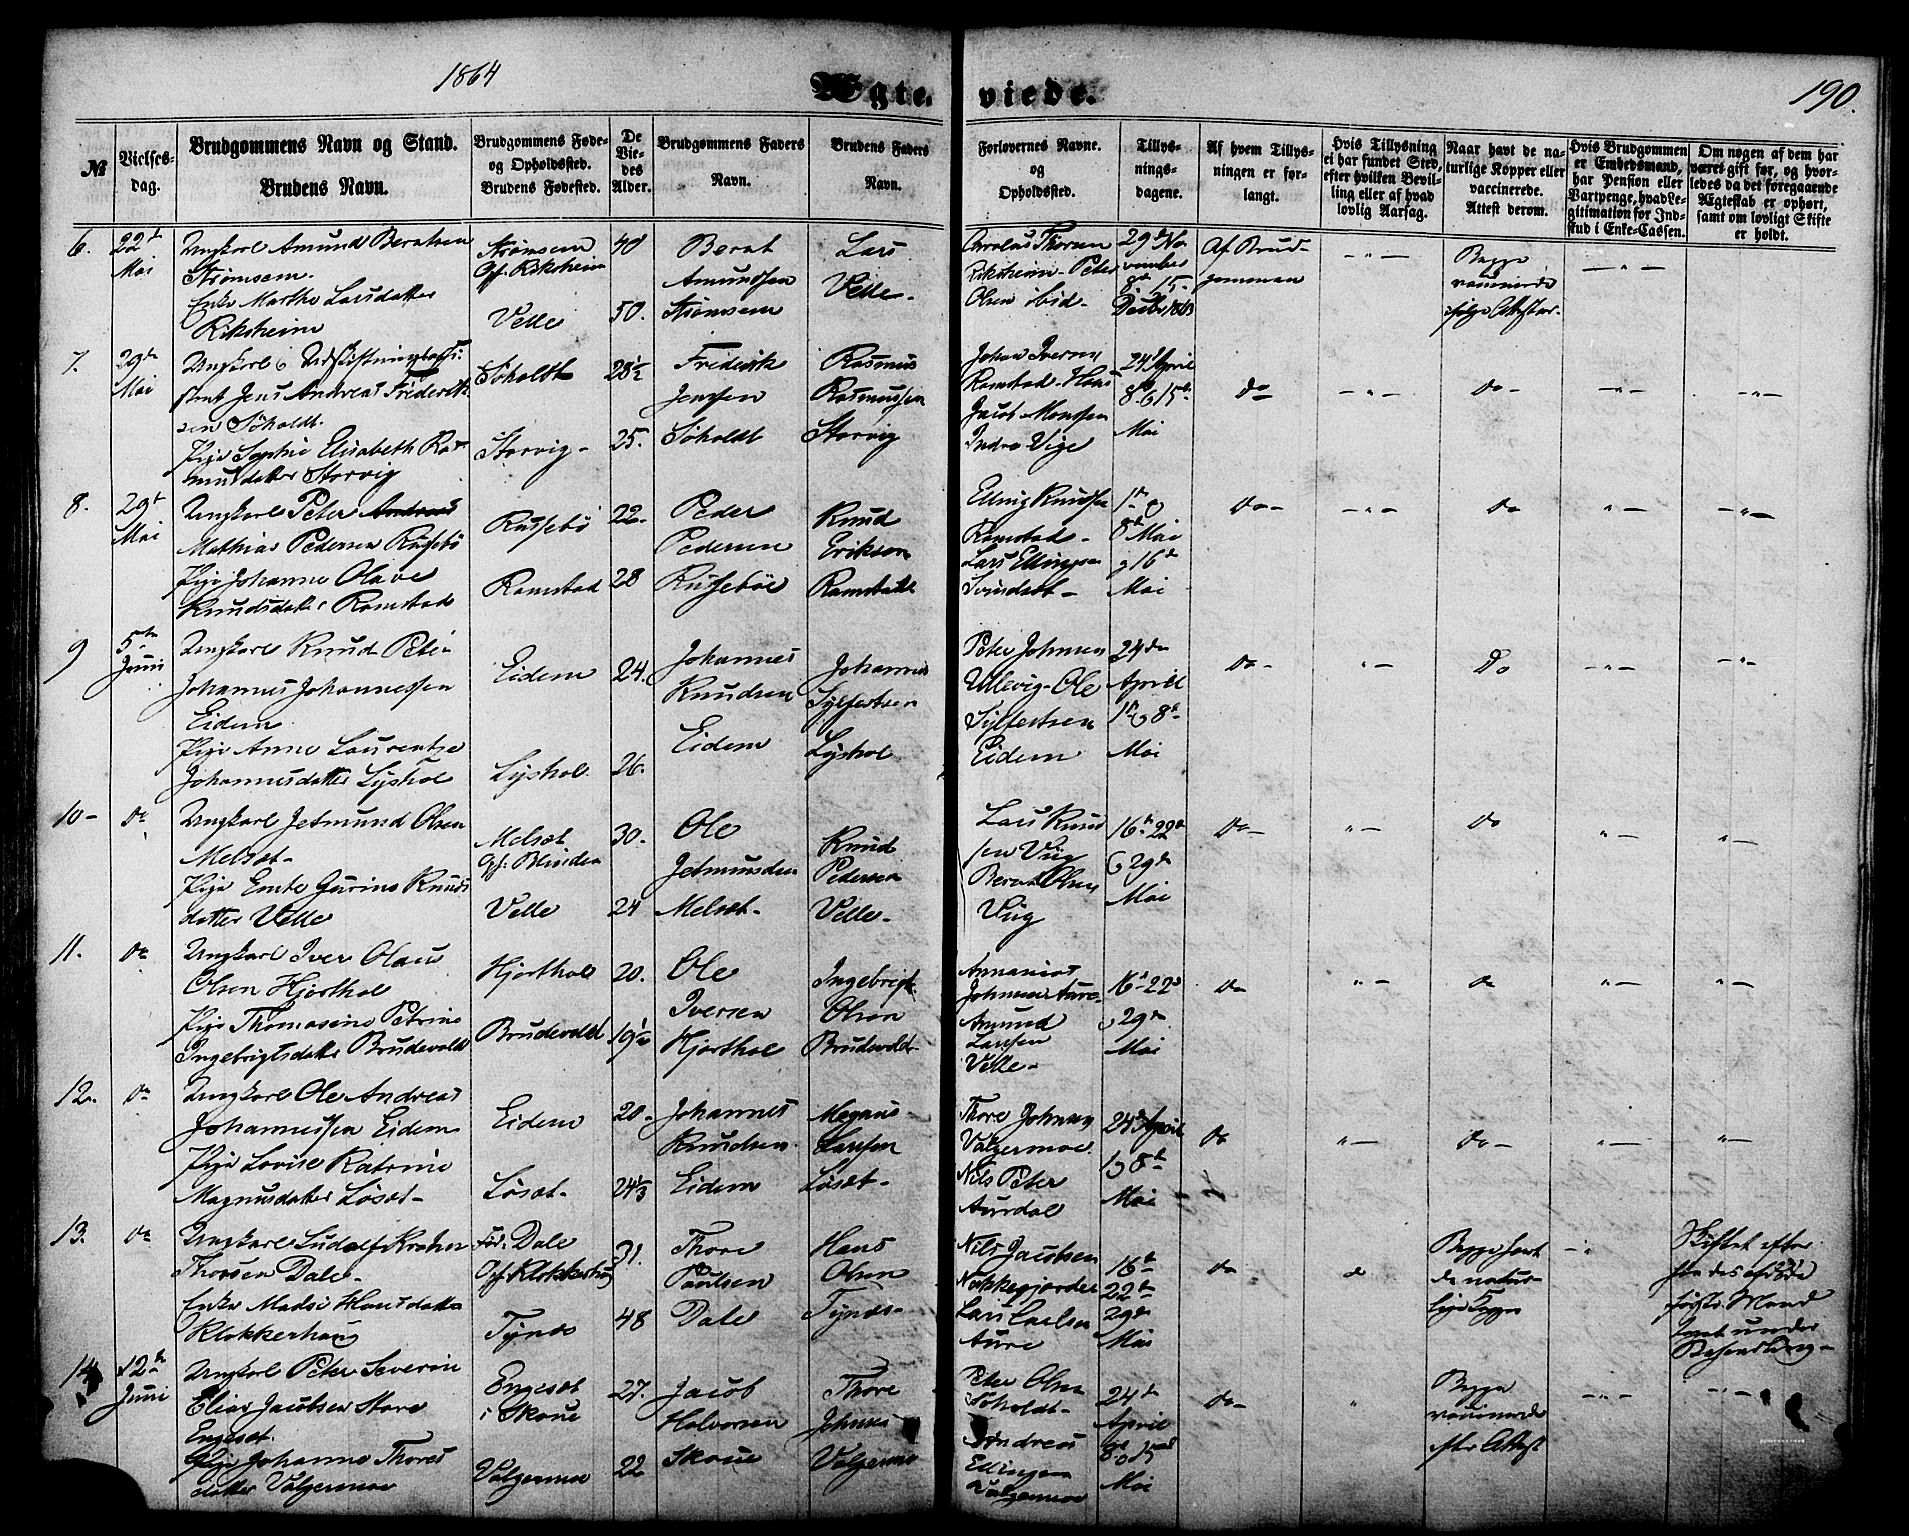 1864
Ægte-
viede.
190.
№
Vielses-
dag.
Brudgommens Navn og Stand.
Brudens Navn.
Brudgommens Føde-
og Opholdssted.
Brudens Fødested.
De
Vie-
des
Alder.
Brudgommens Faders
Navn.
Brudens Faders
Navn.
Forlovernes Navne.
og
Opholdssted.
Tillys-
nings-
dagene.
Af hvem Tillys-
ningen er for-
langt.
Hvis Tillysning
ei har fundet Sted,
efter hvilken Bevil-
ling eller af hvad
lovlig Aarsag.
Naar havt de na-
turlige Kopper eller
vaccinerede.
Attest derom.
Hvis Brudgommen
er Embedsmand,
har Pension eller
Vartpenge, hvad Le-
gitimation for Ind-
skud i Enke-Cassen.
Om nogen af dem har
været gift før, og hvor-
ledes da det foregaaende
Ægteskab er ophørt,
samt om lovligt Skifte
er holdt.
6.
22de
Mai
Ungkarl Amund Berntsen
Strømsem.
Enke Marthe Larsdatter
Riksheim
Strømsem
Opf. Riksheim
Velle
40
50.
Bernt
Amundsen
Strømsem
Lars
Velle-
Thorsen
Riksheim- Peter
Olsen ibid-
29de No
vember
8de 15-
Decbr 1863
Af Brud
gommen
-"-
Begge
vaccinerede
ifølge Attester-
-"-
7.
29de
Mai
Ungkarl
Jens Andreas Frederik
sen Søholdt.
Pige Sophie Elisabeth Ras
musdatter Storvig
Søholdt
Storvig-
28½
25.
Frederik
Jenssen
Søholdt
Rasmus
Rasmussen
Storvig
Johan Iversen
Ramstad- Hans
Jacob Monssen
Indre Vige
24de April
8de og 15de
Mai
do
-"-
do-
-"-
-"-
8.
29de
Mai
Ungkarl Peter Andreas
Mathias Pedersen Russebø
Pige Johanne Olave
Knudsdatter Ramstad
Russebø
Ramstad
22-
28
Peder
Pedersen
Russebøe
Knud
Eriksen
Ramstad
Elling Knudsen
Ramstad-
Lars Ellingsen
1ste og
8de Mai
og 16de
Mai
do-
-"-
do
"-
-"-
9
5te
Juni
Ungkarl Knud Peter
Johannes Johannessen
Eidem
Pige Anne Laurentze
Johannesdatter Lyshol
Eidem
Lyshol.
24.
26.
Johannes
Knudsen
Eidem
Johannes
Sylfestsen
Lyshol
Peter Johnsen
Ullevig- Ole
Sylfestsen
Eidem
24de
April
1ste og 8de
Mai
do-
"-
Do
-"-
-"-
10-
do
Ungkarl Jetmund Olsen
Melsæt-
Pige Emte Gurine Knuds
datter Velle
Melsæt
Opf. Blinden
Velle
30.
24
Ole
Jetmundsen
Melsæt-
Knud
Pedersen
Velle-
Lars Knud
sen Viig
Bernt Olsen
Viig
16de 22de
og 29de
Mai
do-
"-
do
"-
"-
11.
do
Ungkarl Iver Olaus
Olsen Hjorthol
Pige Thomasine Petrine
Ingebrigtsdatter Brudevold
Hjorthol
Brudevold
20.
19½
Ole
Iversen
Hjorthol
Ingebrigt
Olsen
Brudevold-
Annanias
Johnsen Aure-
Amund
Larssen
Velle-
16de 22de
og 29de
Mai
do
"-
do
"-
"-
12.
do
Ungkarl Ole Andreas
Johannessen Eidem
Pige Lovise Katrine
Magnusdatter Løset-
Eidem
Løset-
20-
24⅓
Johannes
Knudsen
Eidem
Magnus
Larssen
Løset-
Thore Johnsen
Valgermoe
Nils Peter
Aurdal
24de April
1 og 8de
Mai
do
"-
do-
"-
"-
13.
do
Ungkarl Ludolf
Thorsen Dale-
Enke Madsi Hansdatter
Klokkerhaug
Fød. Dale
Opf. Klokkerhaug
Tynds
31.
48
Thore
Paulsen
Dale
Hans
Olsen
Tynds-
Nils Jacobsen
Nakkegjerdet
Lars Carlsen
Aure
16de
22de
29de
Mai
do
Begge havt
de natur-
lige Kopper
Skiftet efter
første Mand
havt under
Behandling-
14
12te
Juni
Ungkarl Peter Severin
Elias Jacobsen Store
Engeset.
Pige Johanne Thores
datter Valgermoe
Engeset
i Skoue
Valgermoe
27.
22
Jacob
Halvorsen
Skoue
Thore
Johnsen
Valgermoe
Peter Olsen
Søholdt-
Andreas
Ellingsen
Valgermoe
24de
April
8de og 15de
Mai
do-
"
Begge
vaccinerede
efter Attest
-"-
-"-